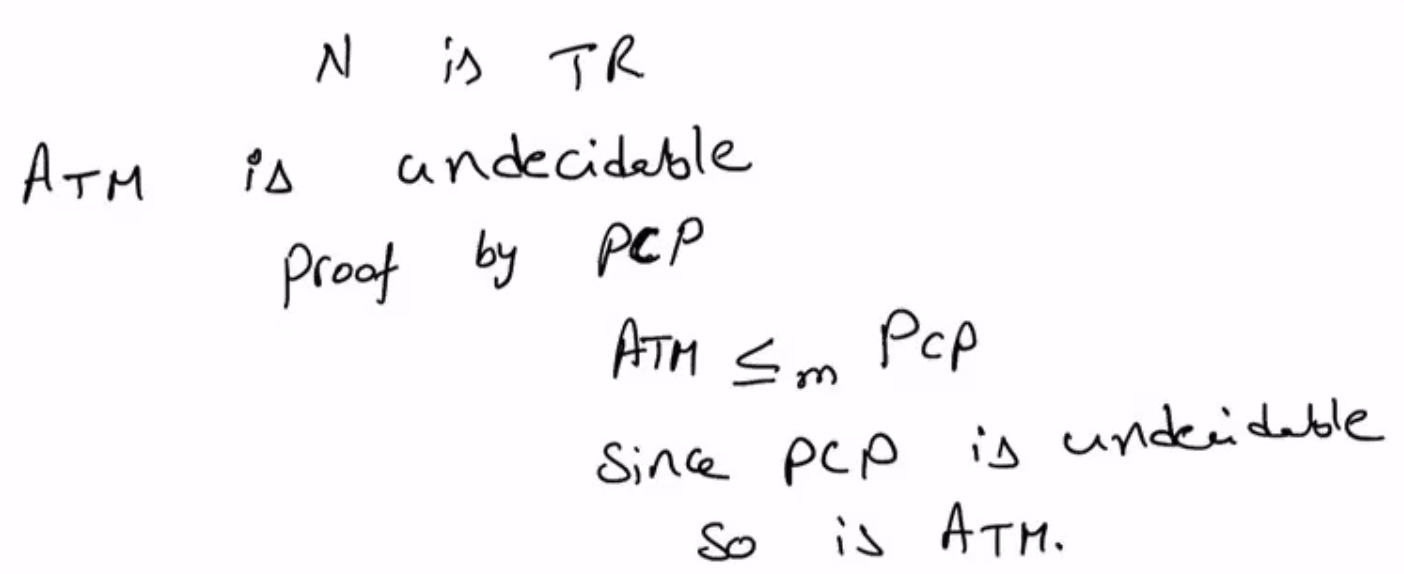 N is TR
ATM is undecidable
Proof by PCP
ATM ≤m PCP
Since PCP is undecidable
so is ATM.